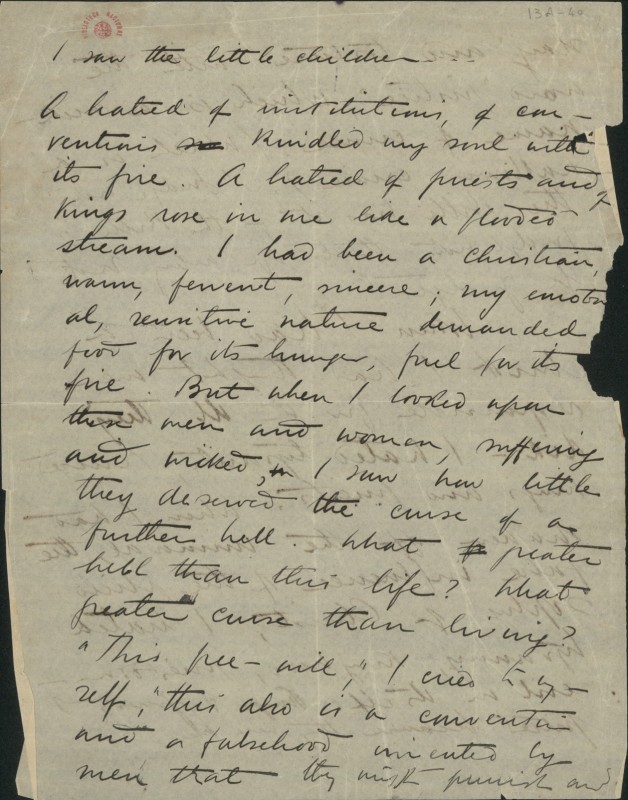 BIBLIOTECA NACIONAL
13A-40
I saw the little children
A hatred of institutions, of con-
ventions so kindled my soul with
its fire. A hatred of priests and of
kings rose in me like a flooded
stream. I had been a christian,
warm, fervent, sincere; my emotion
al, sensitive nature demanded
food for its hunger, fuel for its
fire. But when I looked upon
these men and woman, suffering
and wicked, I saw how little
they deserved the curse of a
further hell. What greater
hell than this life? What
greater curse than living?
"This free-will," I cried to my-
self, "this also is a convention
and a falsehood invented by
men that they might punish and